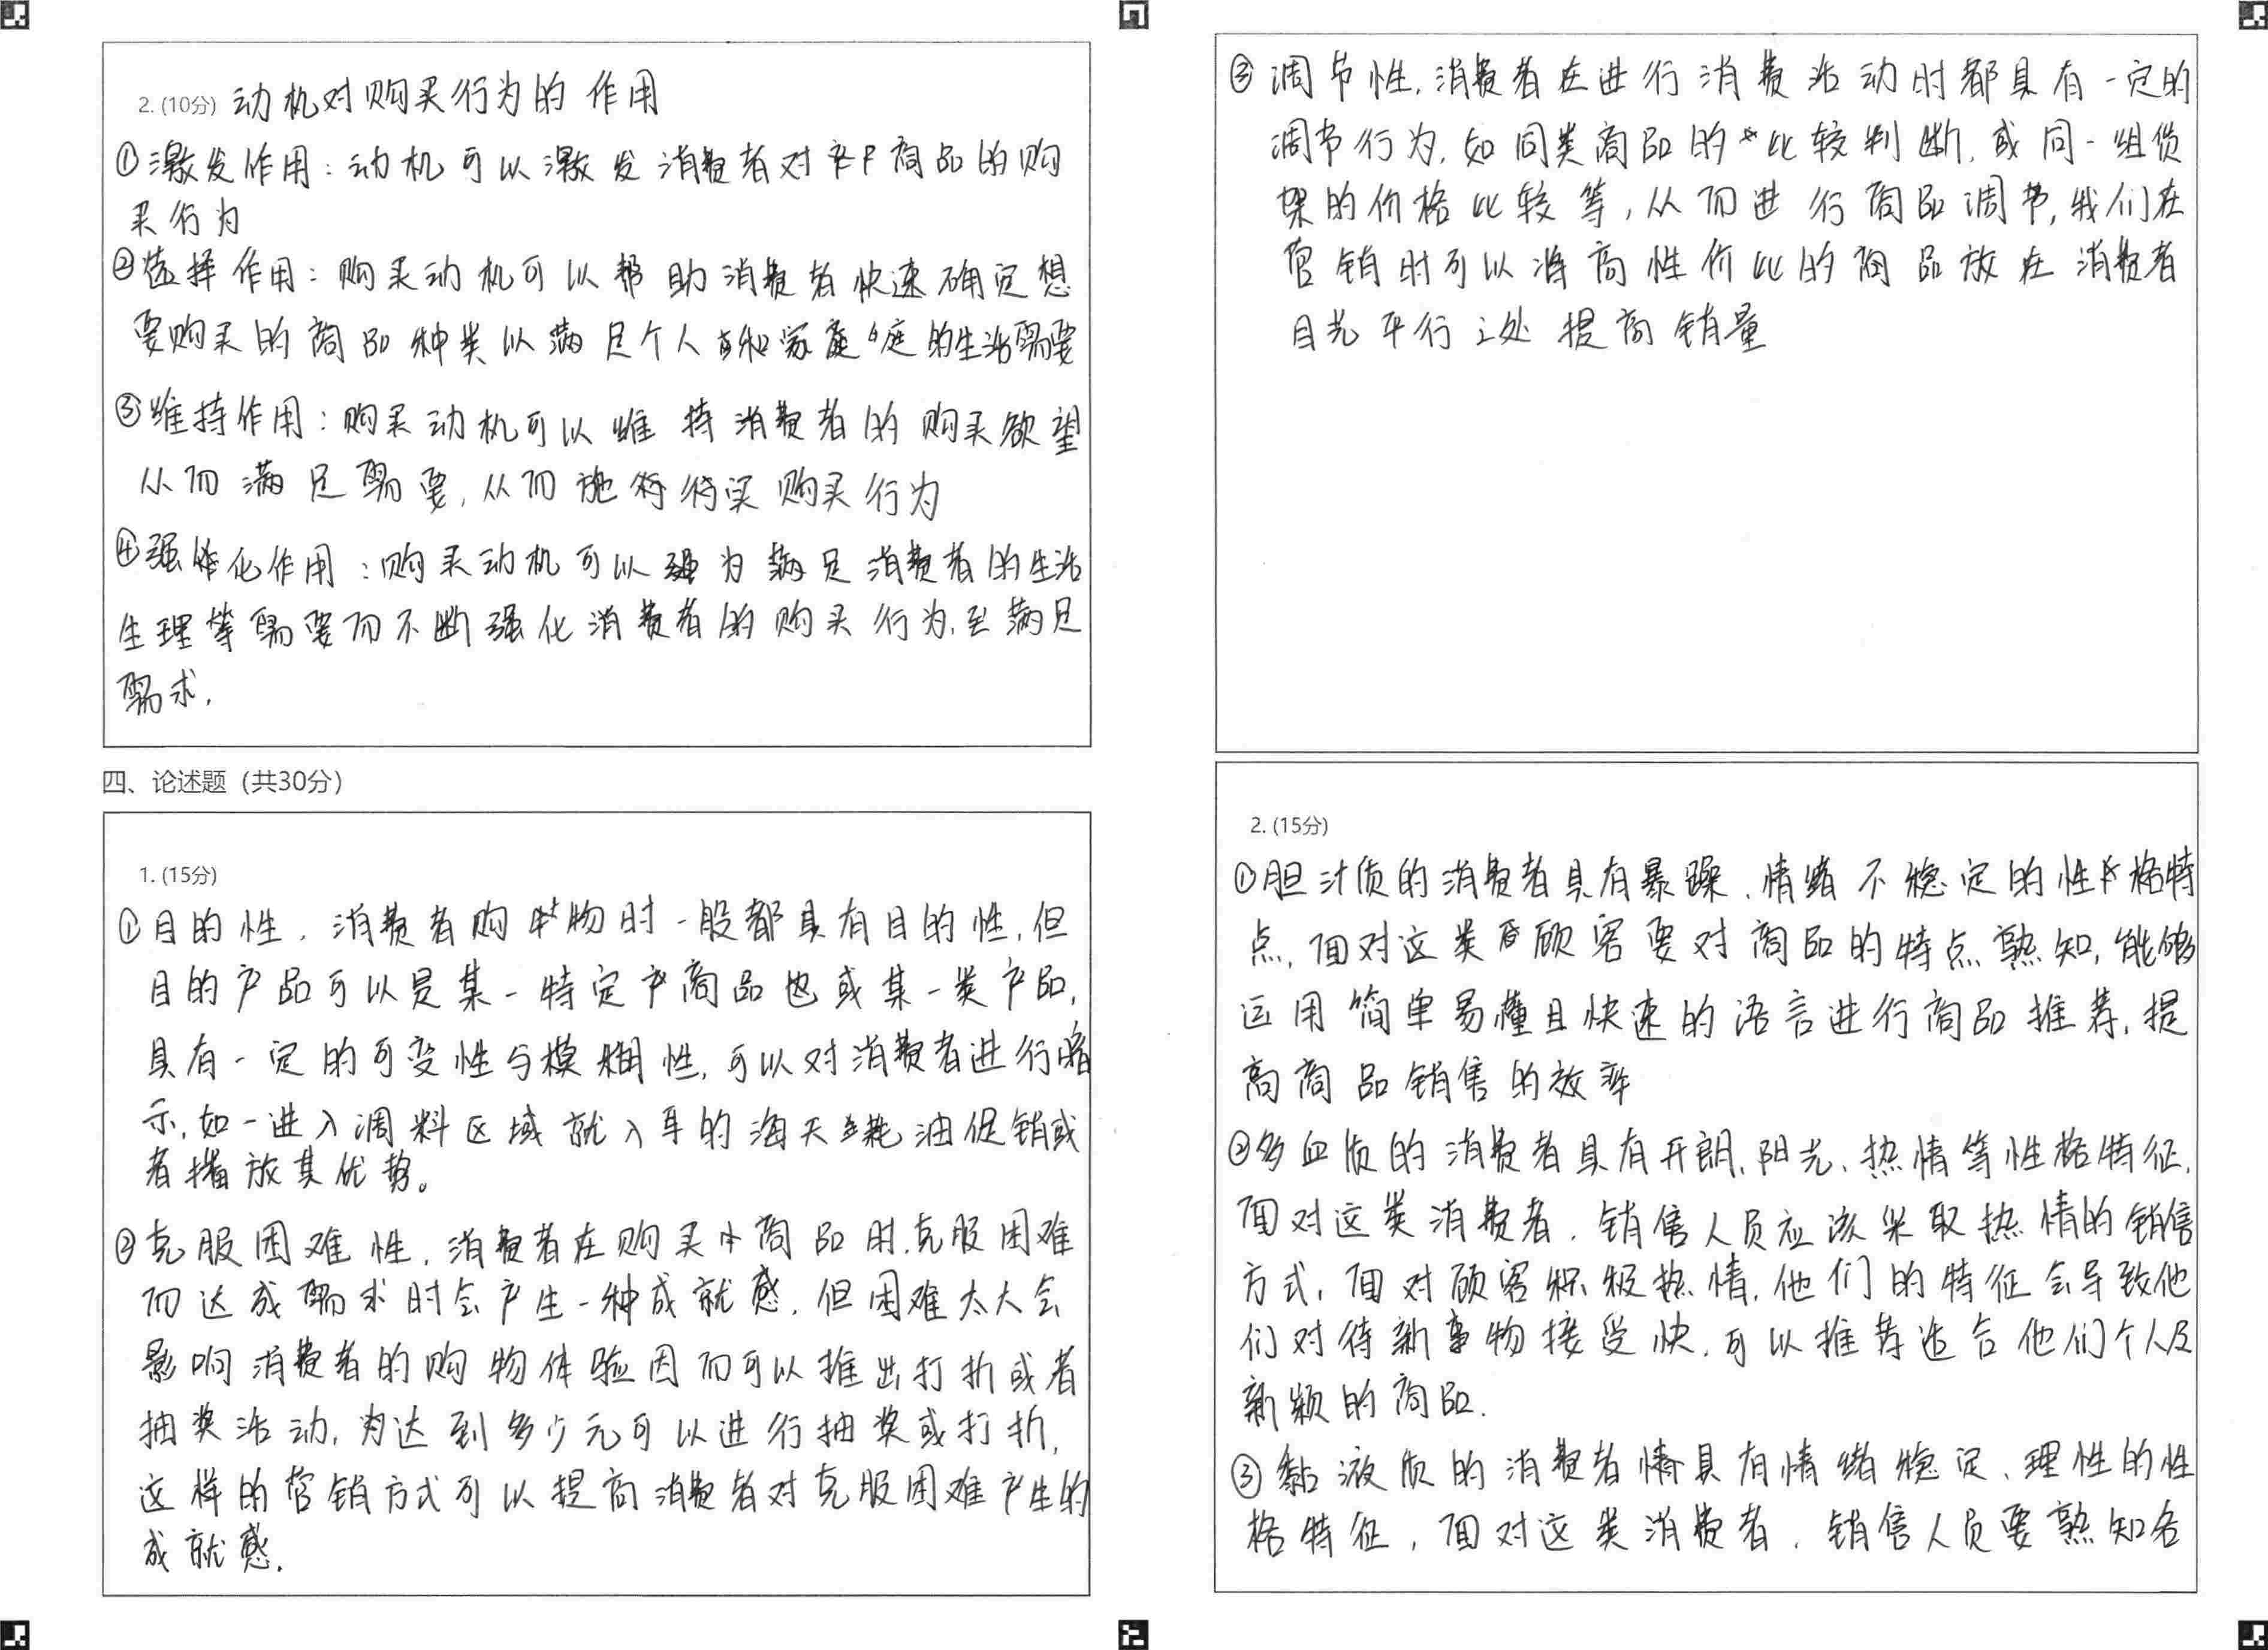 2. (10分) 动机对购买行为的作用
①激发作用：动机可以激发消费者对商品的购
买行为
②选择作用：购买动机可以帮助消费者快速确定想
要购买的商品种类以满足个人和家庭的生活需要
③维持作用：购买动机可以维持消费者的购买欲望
从而满足需要，从而 购买行为
④强化作用：购买动机可以为满足消费者的生活
生理等需要而不断强化消费者的购买行为，至满足
需求，
四、论述题（共30分）
1. (15分)
①目的性，消费者购物时一般都具有目的性，但
目的产品可以是某一特定商品也或某一类产品，
具有一定的可变性与模糊性，可以对消费者进行暗
示，如一进入调料区域就入耳的海天耗油促销或
者播放其优势。
②克服困难性，消费者在购买商品时，克服困难
而达成需求时会产生一种成就感，但困难太大会
影响消费者的购物体验因而可以推出打折或者
抽奖活动，为达到多少元可以进行抽奖或打折，
这样的营销方式可以提高消费者对克服困难产生的
成就感，
③调节性，消费者在进行消费活动时都具有一定的
调节行为，如同类商品的比较判断，或同一组货
架的价格比较等，从而进行商品调节，我们在
营销时可以将高性价比的商品放在消费者
目光平行之处提高销量
2. (15分)
①胆汁质的消费者具有暴躁、情绪不稳定的性格特
点，面对这类顾客要对商品的特点熟知，能够
运用简单易懂且快速的语言进行商品推荐，提
高商品销售的效率
②多血质的消费者具有开朗、阳光、热情等性格特征，
面对这类消费者，销售人员应该采取热情的销售
方式，面对顾客积极热情，他们的特征会导致他
们对待新事物接受快，可以推荐适合他们个人及
新颖的商品．
③黏液质的消费者具有情绪稳定、理性的性
格特征，面对这类消费者，销售人员要熟知各